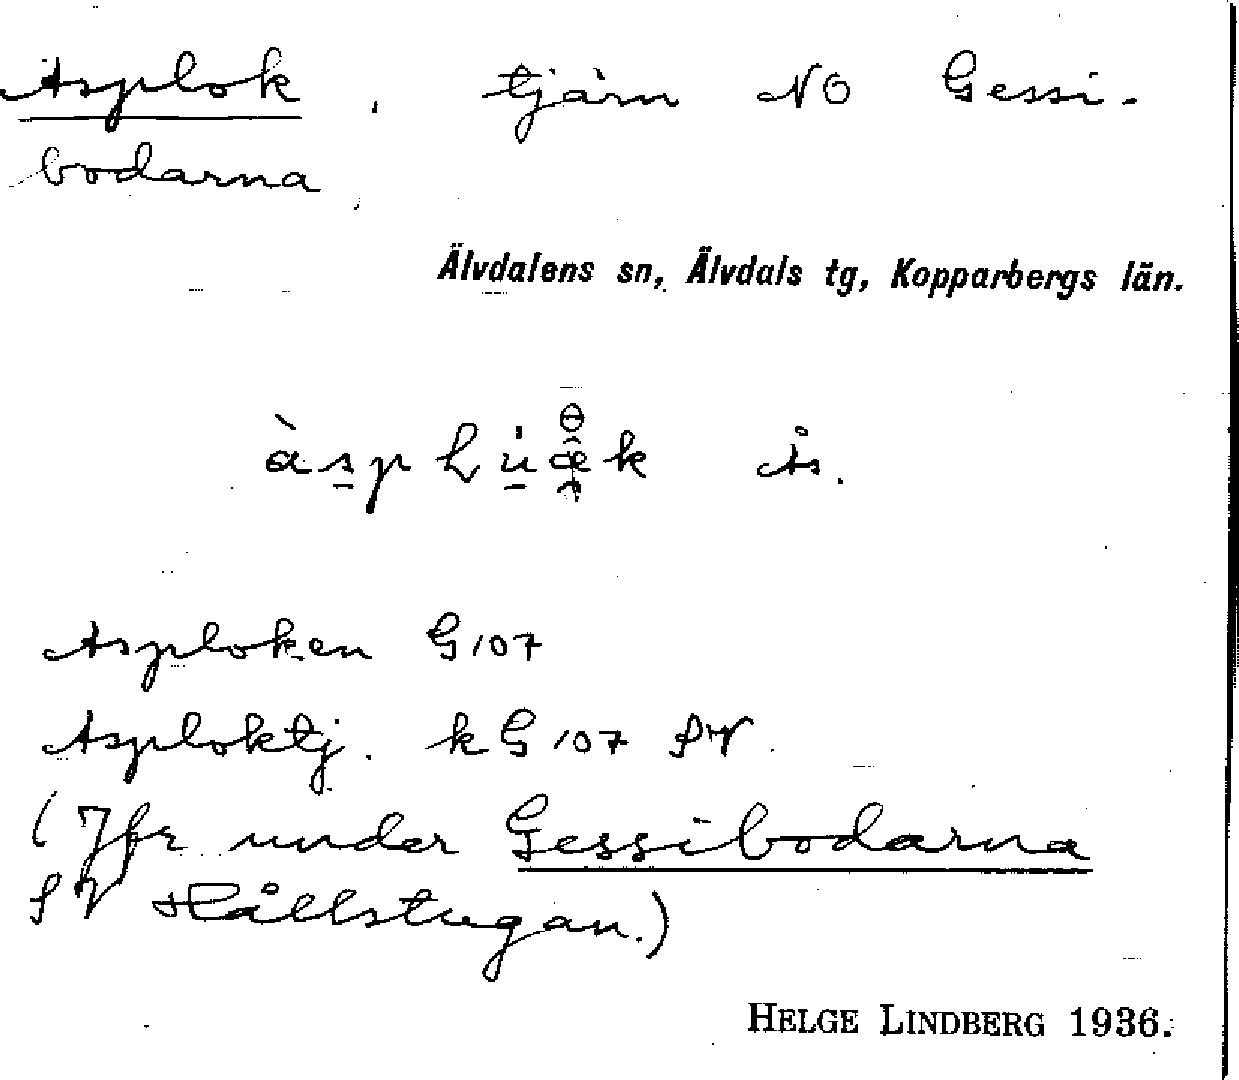 Asplok, tjärn NO Gessi-
bodarna,
Älvdalens sn, Älvdals tg, Kopparbergs län.
Ås.
Asploken G107
Asploktj. kG107 SV
(Jfr under Gessibodarna
SV Hållstugan.)
HELGE LINDBERG 1936.